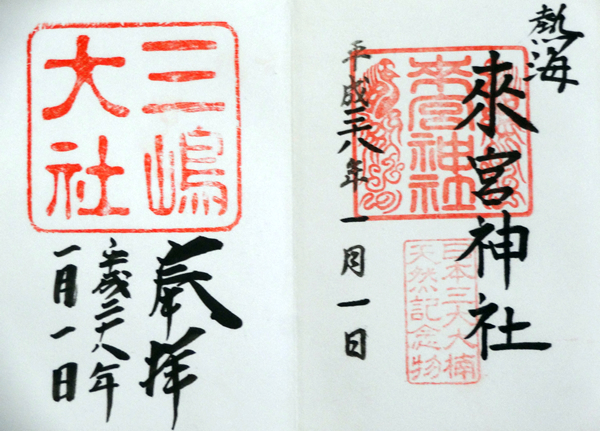 熱海
來宮神社
來宮神社
日本三大大楠
天然記念物
平成二十八年一月一日
三嶋
大社
奉拝
平成二十八年
一月一日